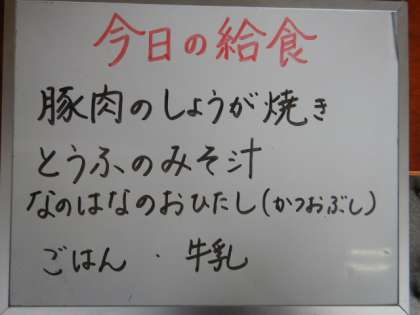 今日の給食
豚肉のしょうが焼き
とうふのみそ汁
なのはなのおひたし(かつおぶし)
ごはん ・ 牛乳